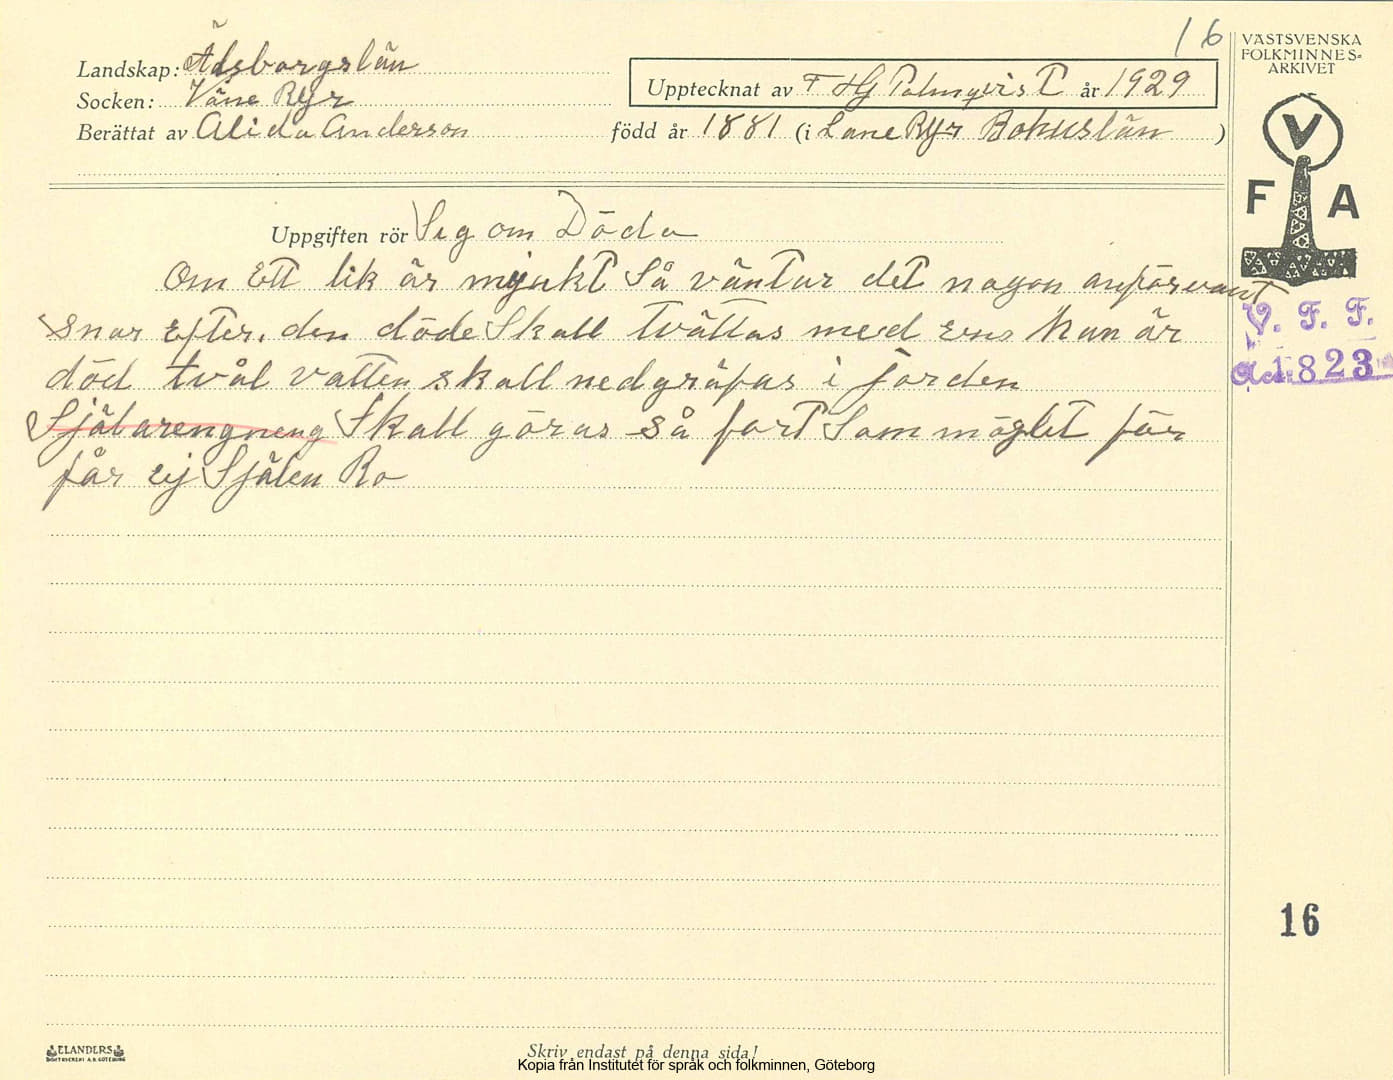 16
VÄSTSVENSKA
FOLKMINNES=
ARKIVET
Landskap: Älsborgslän
Upptecknat av F HG Palmqvist år 1929
Socken: Väne Ryr
Berättat av Alida Anderson född år 1881 (i Lane Ryr Bohuslän)
V
F A
Uppgiften rör Seg om Döda
Om Ett lik är mjukt Så väntar det nogon anförvant
snar efter. den döde Skall tvättas med Ens han är
död tvål vatten skall nedgräfvas i jorden
Själarengneng Skall göras så fort Som möglit för
får ej Själen Ro
V. F. F.
Acc. 1823
16
ELANDERS
BOKTRYCKERI A.B. GÖTEBORG
Skriv endast på denna sida!
Kopia från Institutet för språk och folkminnen, Göteborg